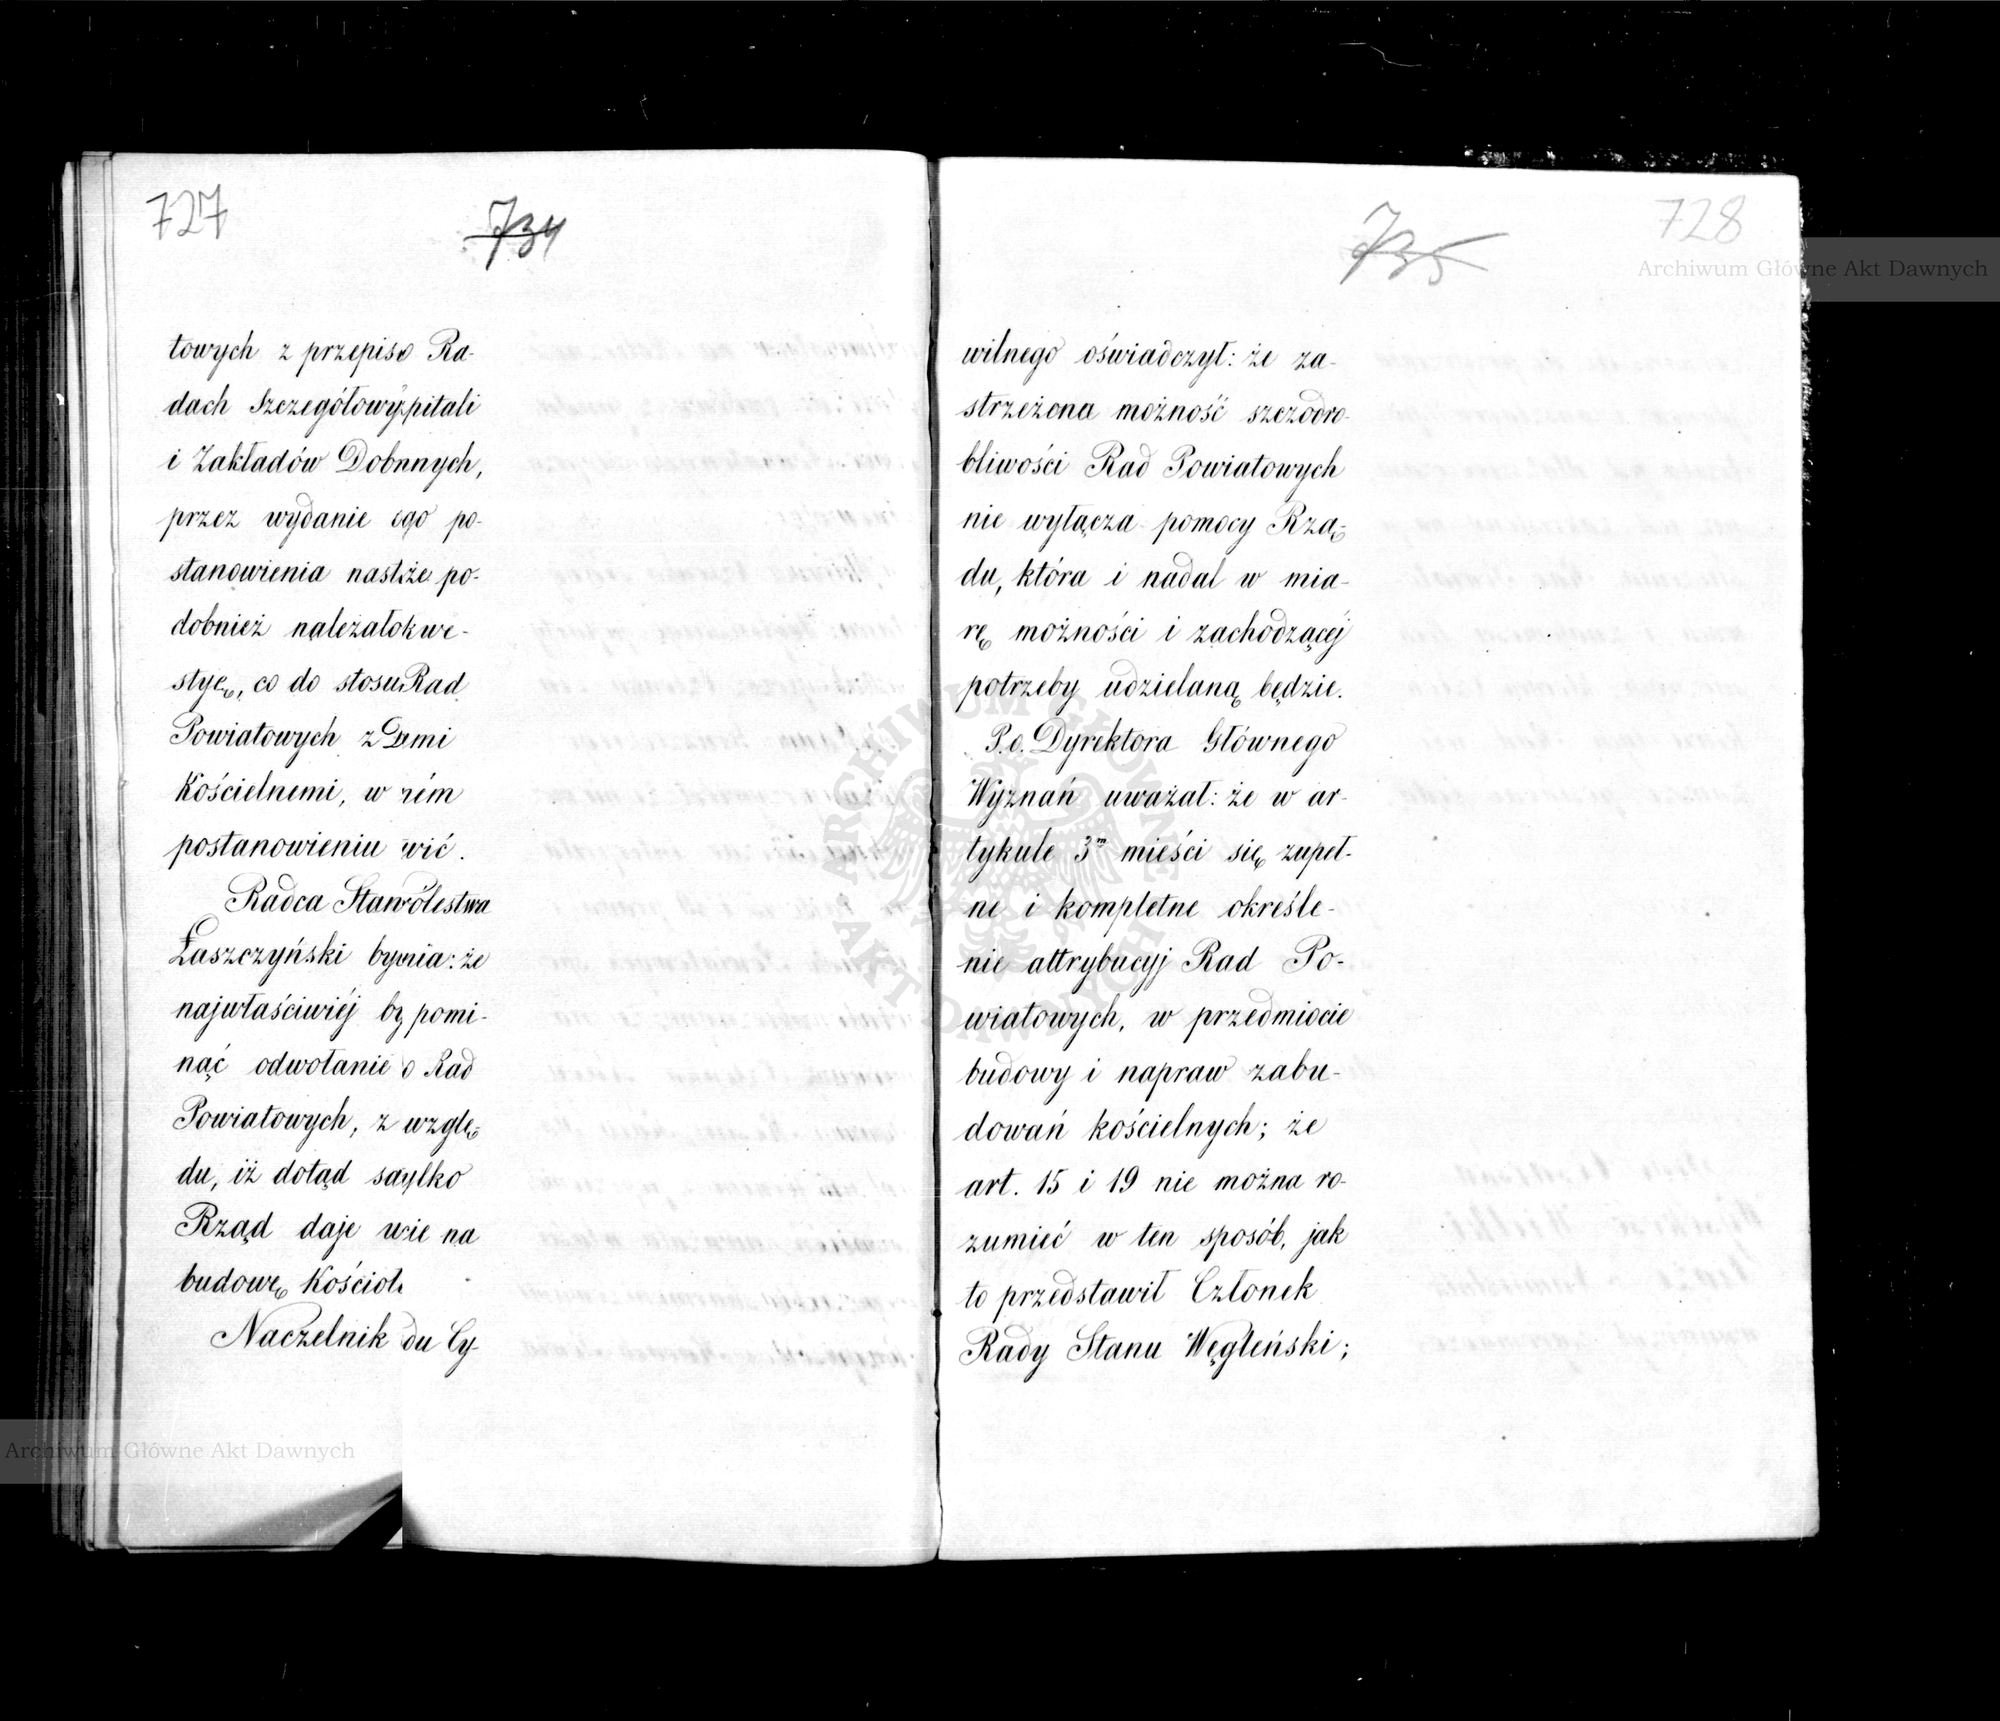 727
734
towych z przepis o Ra-
dach Szczegółowy pitali
i Zakładów Dob nnych,
przez wydanie ego po-
stanowienia nast że po-
dobnież należało kwe-
styę, co do stosu Rad
Powiatowych z D mi
Kościelnemi, w rém
postanowieniu wić.
Radca Sta rólestwa
Łaszczyński by nia: że
najwłaściwiéj by pomi-
nąć odwołanie o Rad
Powiatowych, z wzglę-
du, iż dotąd sa ylko
Rząd daje w cie na
budowę Kościoł
Naczelnik du Cy-
728
735
wilnego oświadczył: że za-
strzeżona możność szczodro-
bliwości Rad Powiatowych
nie wyłącza pomocy Rzą-
du, która i nadal w mia-
rę możności i zachodzącéj
potrzeby udzielaną będzie.
P.o. Dyrektora Głównego
Wyznań uważał: że w ar-
tykule 3m mieści się zupeł-
ne i kompletne określe-
nie attrybucyj Rad Po-
wiatowych, w przedmiocie
budowy i napraw zabu-
dowań kościelnych; że
art. 15 i 19 nie można ro-
zumieć w ten sposób, jak
to przedstawił Członek
Rady Stanu Węgleński;
Archiwum Główne Akt Dawnych
Archiwum Główne Akt Dawnych
ARCHIWUM GŁÓWNE AKT DAWNYCH